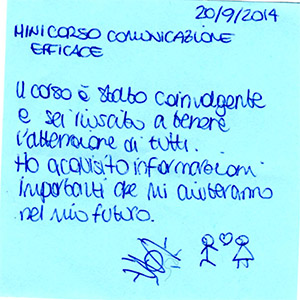 20/9/2014
MINICORSO COMUNICAZIONE
EFFICACE
Il corso è stato coinvolgente
e sei riuscito a tenere
l'attenzione di tutti.
Ho acquisito informazioni
importanti che mi aiuteranno
nel mio futuro.